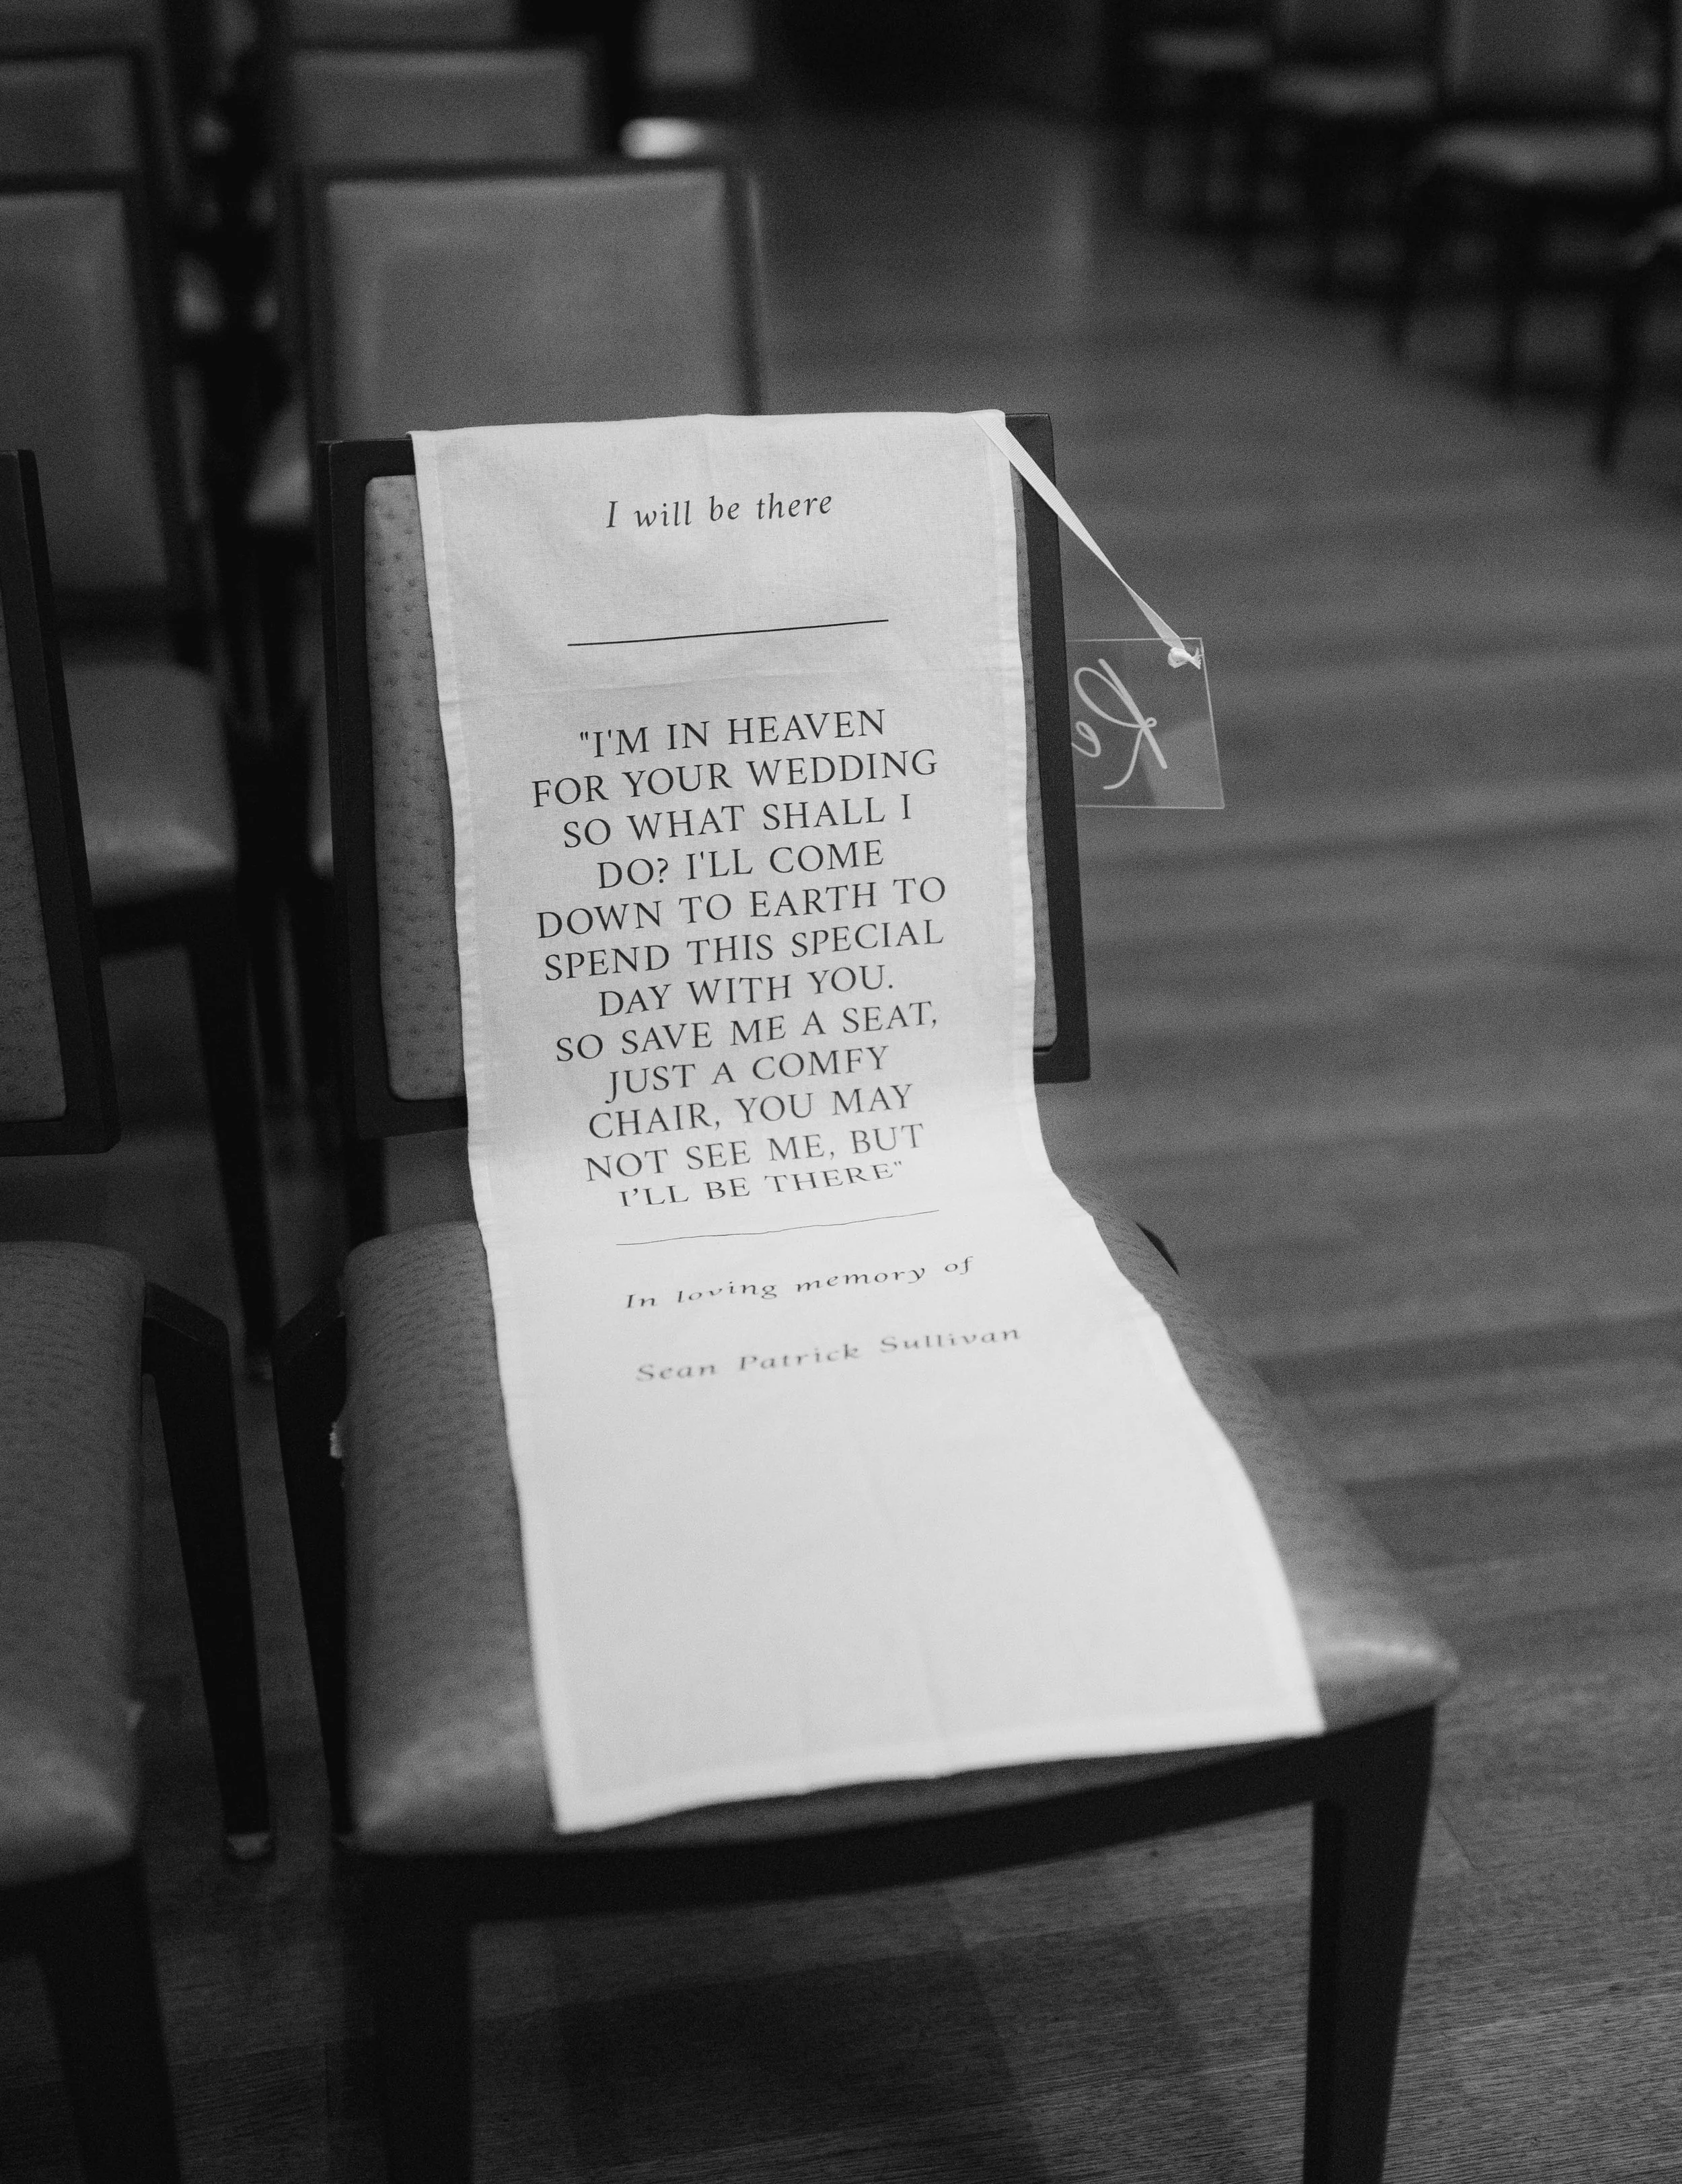 I will be there
"I'M IN HEAVEN
FOR YOUR WEDDING
SO WHAT SHALL I
DO? I'LL COME
DOWN TO EARTH TO
SPEND THIS SPECIAL
DAY WITH YOU.
SO SAVE ME A SEAT,
JUST A COMFY
CHAIR, YOU MAY
NOT SEE ME, BUT
I'LL BE THERE"
In loving memory of
Sean Patrick Sullivan